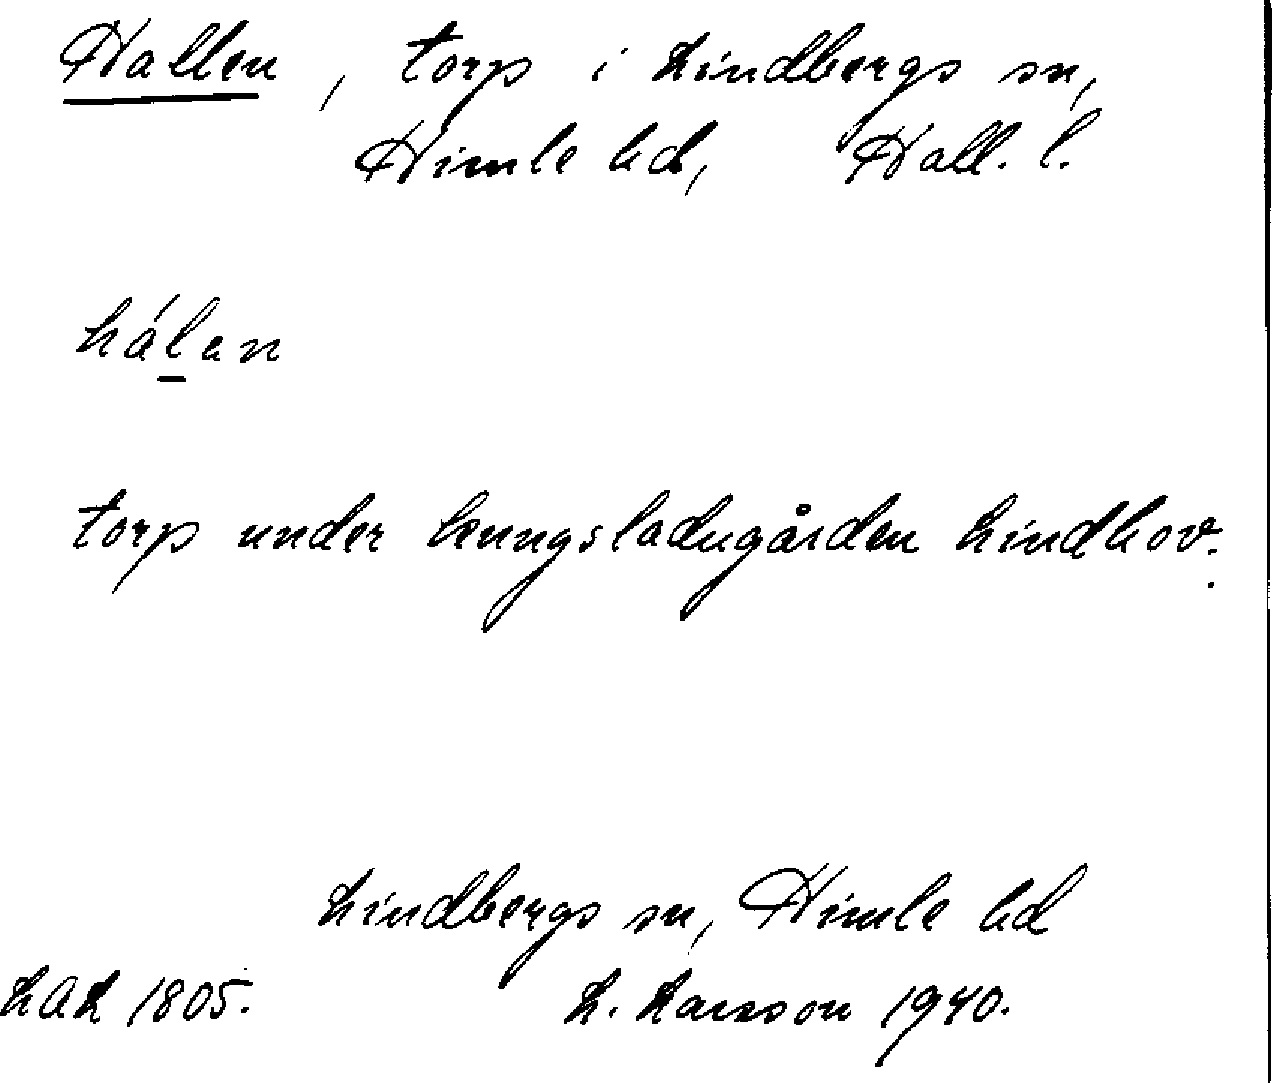 Hallen, torp i Lindbergs sn,
Himle hd, Hall. l.
hálan
torp under kungsladugården Lindhov.
Lindbergs sn, Himle hd
LAL 1805. L. Larsson 1940.